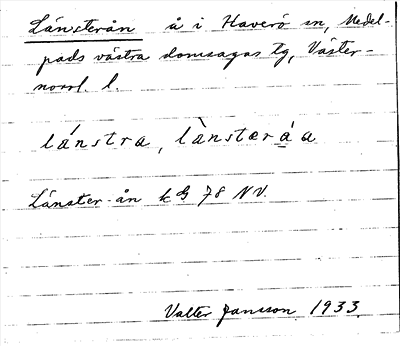 Länsterån å i Haverö sn, Medel-
pads västra domsagas tg, Väster-
norrl. l.
lánstra, lànsteráa
Länster-ån kG 78 NV.
Valter Jansson 1933.